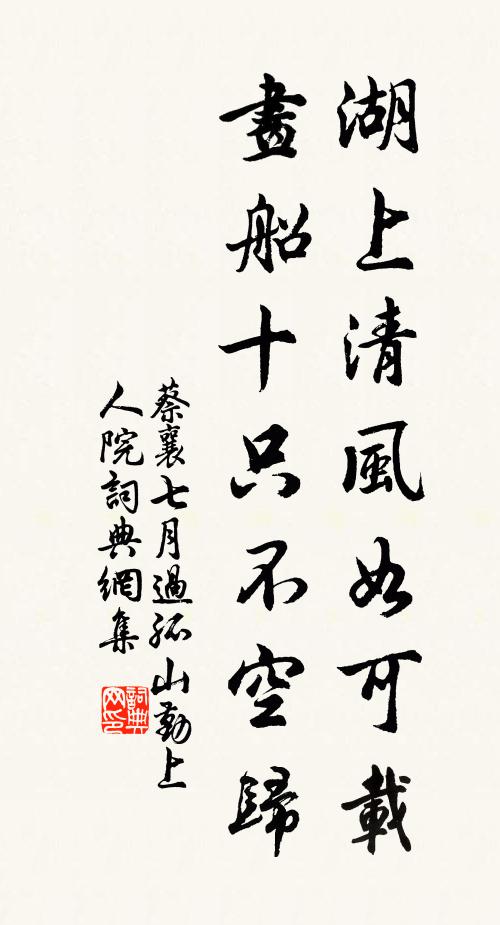 湖上清風如可載
畫船十只不空歸
蔡襄七月過孤山勤上
人院詞典網集
詞典
网印